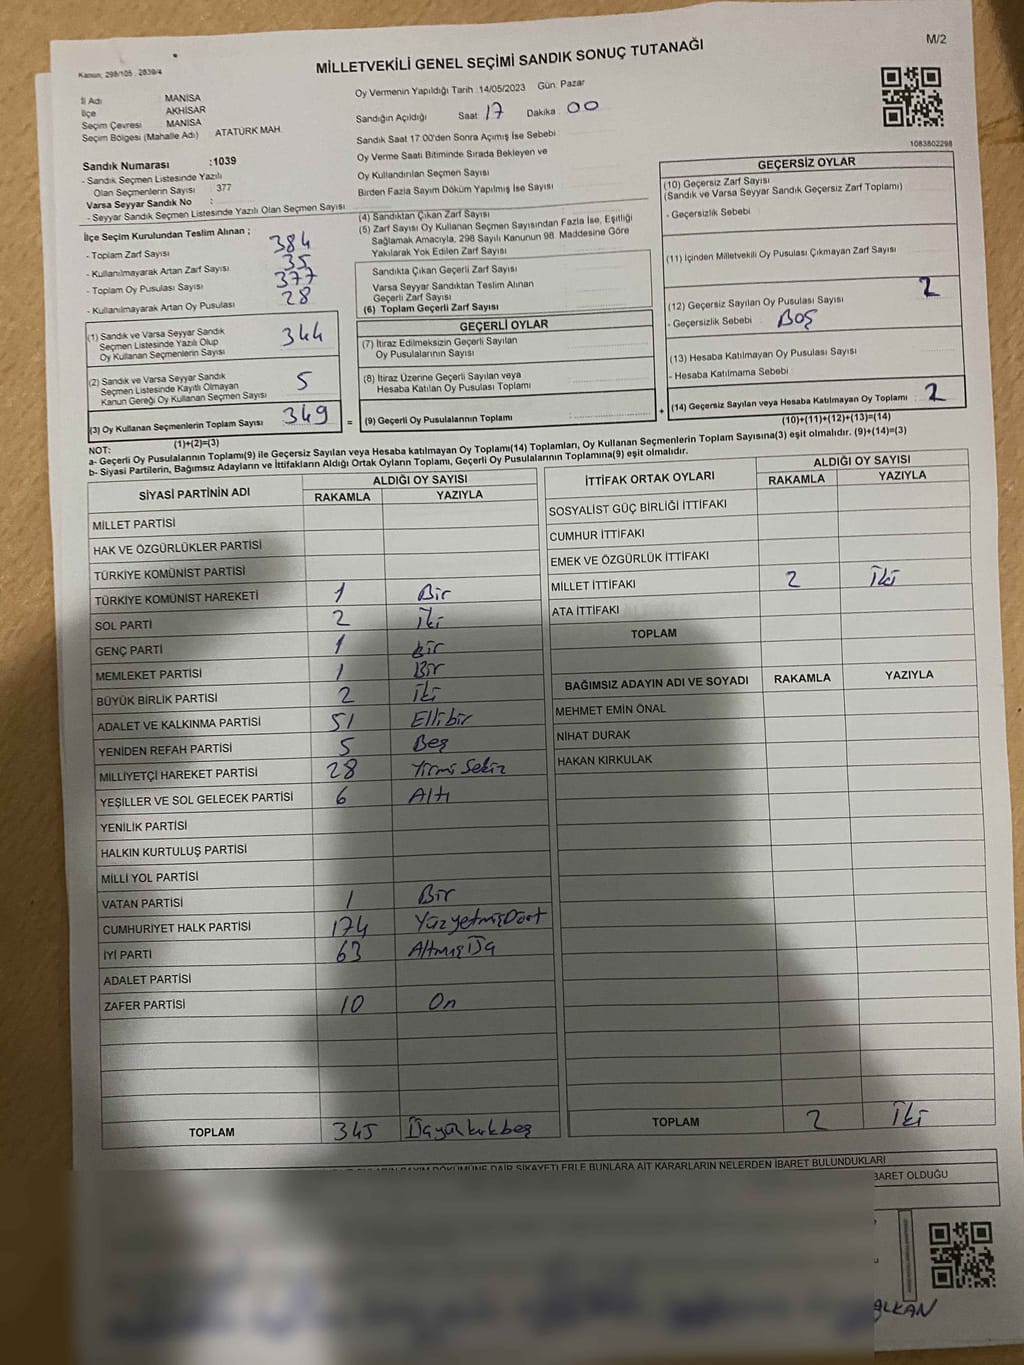 Kanun; 298/105 : 2839/4
MİLLETVEKİLİ GENEL SEÇİMİ SANDIK SONUÇ TUTANAĞI
M/2
İl Adı MANİSA
İlçe AKHİSAR
Seçim Çevresi MANİSA
Seçim Bölgesi (Mahalle Adı) ATATÜRK MAH.
Sandık Numarası :1039
- Sandık Seçmen Listesinde Yazılı
Olan Seçmenlerin Sayısı : 377
Varsa Seyyar Sandık No :
- Seyyar Sandık Seçmen Listesinde Yazılı Olan Seçmen Sayısı
Oy Vermenin Yapıldığı Tarih :14/05/2023 Gün: Pazar
Sandığın Açıldığı Saat: 17 Dakika : 00
Sandık Saat 17.00'den Sonra Açımış İse Sebebi :
Oy Verme Saati Bitiminde Sırada Bekleyen ve
Oy Kullandırılan Seçmen Sayısı
Birden Fazla Sayım Döküm Yapılmış İse Sayısı
1083802298
İlçe Seçim Kurulundan Teslim Alınan ;
- Toplam Zarf Sayısı 384
- Kullanılmayarak Artan Zarf Sayısı 35
- Toplam Oy Pusulası Sayısı 377
- Kullanılmayarak Artan Oy Pusulası 28
(1) Sandık ve Varsa Seyyar Sandık
Seçmen Listesinde Yazılı Olup
Oy Kullanan Seçmenlerin Sayısı 344
(2) Sandık ve Varsa Seyyar Sandık
Seçmen Listesinde Kayıtlı Olmayan
Kanun Gereği Oy Kullanan Seçmen Sayısı 5
(3) Oy Kullanan Seçmenlerin Toplam Sayısı 349
(1)+(2)=(3)
(4) Sandıktan Çıkan Zarf Sayısı
(5) Zarf Sayısı Oy Kullanan Seçmen Sayısından Fazla İse, Eşitliği
Sağlamak Amacıyla, 298 Sayılı Kanunun 98. Maddesine Göre
Yakılarak Yok Edilen Zarf Sayısı
Sandıkta Çıkan Geçerli Zarf Sayısı
Varsa Seyyar Sandıktan Teslim Alınan
Geçerli Zarf Sayısı
(6) Toplam Geçerli Zarf Sayısı
GEÇERLİ OYLAR
(7) İtiraz Edilmeksizin Geçerli Sayılan
Oy Pusulalarının Sayısı
(8) İtiraz Üzerine Geçerli Sayılan veya
Hesaba Katılan Oy Pusulası Toplamı
= (9) Geçerli Oy Pusulalarının Toplamı : +
GEÇERSİZ OYLAR
(10) Geçersiz Zarf Sayısı
(Sandık ve Varsa Seyyar Sandık Geçersiz Zarf Toplamı)
- Geçersizlik Sebebi :
(11) İçinden Milletvekili Oy Pusulası Çıkmayan Zarf Sayısı
(12) Geçersiz Sayılan Oy Pusulası Sayısı 2
- Geçersizlik Sebebi : BOŞ
(13) Hesaba Katılmayan Oy Pusulası Sayısı
- Hesaba Katılmama Sebebi :
(14) Geçersiz Sayılan veya Hesaba Katılmayan Oy Toplamı : 2
(10)+(11)+(12)+(13)=(14)
NOT:
a- Geçerli Oy Pusulalarının Toplamı(9) ile Geçersiz Sayılan veya Hesaba katılmayan Oy Toplamı(14) Toplamları, Oy Kullanan Seçmenlerin Toplam Sayısına(3) eşit olmalıdır. (9)+(14)=(3)
b- Siyasi Partilerin, Bağımsız Adayların ve İttifakların Aldığı Ortak Oyların Toplamı, Geçerli Oy Pusulalarının Toplamına(9) eşit olmalıdır.
SİYASİ PARTİNİN ADI ALDIĞI OY SAYISI
RAKAMLA YAZIYLA
MİLLET PARTİSİ
HAK VE ÖZGÜRLÜKLER PARTİSİ
TÜRKİYE KOMÜNİST PARTİSİ
TÜRKİYE KOMÜNİST HAREKETİ 1 Bir
SOL PARTİ 2 İki
GENÇ PARTİ 1 Bir
MEMLEKET PARTİSİ 1 Bir
BÜYÜK BİRLİK PARTİSİ 2 İki
ADALET VE KALKINMA PARTİSİ 51 Ellibir
YENİDEN REFAH PARTİSİ 5 Beş
MİLLİYETÇİ HAREKET PARTİSİ 28 Yirmi Sekiz
YEŞİLLER VE SOL GELECEK PARTİSİ 6 Altı
YENİLİK PARTİSİ
HALKIN KURTULUŞ PARTİSİ
MİLLİ YOL PARTİSİ
VATAN PARTİSİ 1 Bir
CUMHURİYET HALK PARTİSİ 174 YüzyetmişDört
İYİ PARTİ 63 AltmışÜç
ADALET PARTİSİ
ZAFER PARTİSİ 10 On
TOPLAM 345 Üçyüzkırkbeş
İTTİFAK ORTAK OYLARI ALDIĞI OY SAYISI
RAKAMLA YAZIYLA
SOSYALİST GÜÇ BİRLİĞİ İTTİFAKI
CUMHUR İTTİFAKI
EMEK VE ÖZGÜRLÜK İTTİFAKI
MİLLET İTTİFAKI 2 İki
ATA İTTİFAKI
TOPLAM
BAĞIMSIZ ADAYIN ADI VE SOYADI RAKAMLA YAZIYLA
MEHMET EMİN ÖNAL
NİHAT DURAK
HAKAN KIRKULAK
TOPLAM 2 İki
DÖKÜMÜNE DAİR ŞİKAYETLERLE BUNLARA AİT KARARLARIN NELERDEN İBARET BULUNDUKLARI
BARET OLDUĞU
ALKAN